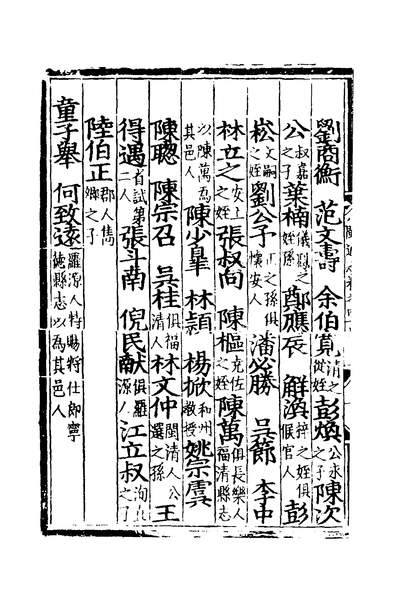 劉商衡 范文壽 余伯寬清之從姪 彭煥公永之子 陳次
公叔嘉之子 葉楠儀鳳之姪孫 鄭應辰 鮮 梓之姪俱候官人 彭
崧文嗣之姪 劉公予正之孫俱懷安人 潘必勝 吳節 李中
林立之安上之姪 張叔向 陳樞充佐之姪 陳萬俱長樂人福清縣志
以陳萬為其邑人 陳少皐 林頴 楊掀和州教授 姚宗虞
陳聰 陳宗召 吳桂俱福清人 林文仲閩清人公選之孫 王
得遇省試第二人 張斗南 倪民獻俱羅源人 江立叔洵直之子
陸伯正郡人雋卿之子
童子舉 何致遠羅源人特賜特仕郎寧德縣志以為其邑人